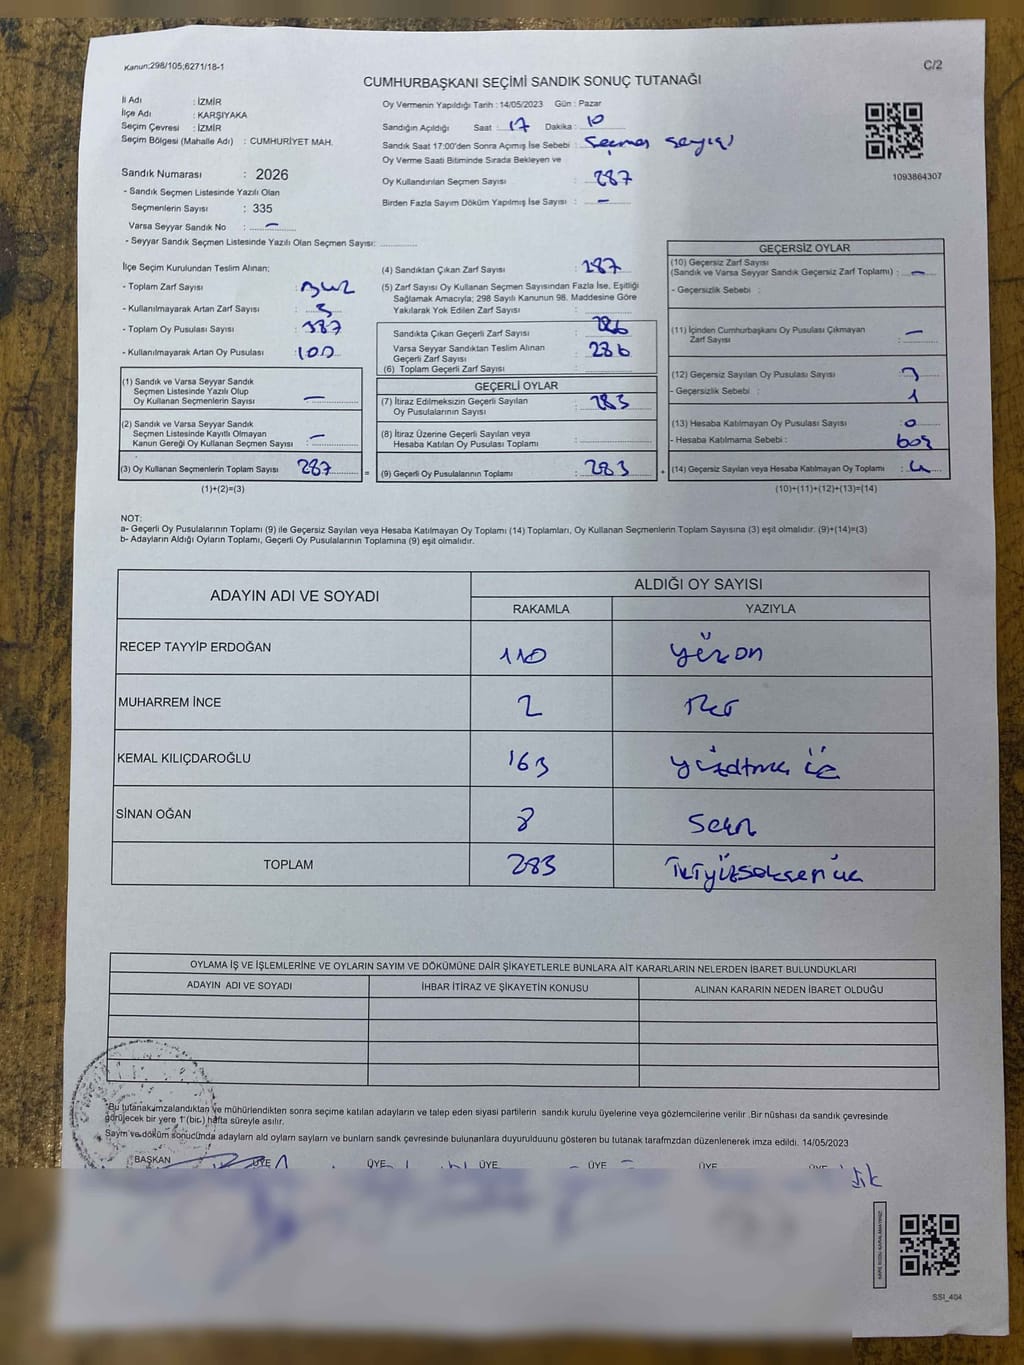 Kanun;298/105;6271/18-1
C/2
CUMHURBAŞKANI SEÇİMİ SANDIK SONUÇ TUTANAĞI
İl Adı : İZMİR
İlçe Adı : KARŞIYAKA
Seçim Çevresi : İZMİR
Seçim Bölgesi (Mahalle Adı) : CUMHURİYET MAH.
Sandık Numarası : 2026
- Sandık Seçmen Listesinde Yazılı Olan
Seçmenlerin Sayısı : 335
Varsa Seyyar Sandık No : –
- Seyyar Sandık Seçmen Listesinde Yazılı Olan Seçmen Sayısı:
Oy Vermenin Yapıldığı Tarih : 14/05/2023 Gün : Pazar
Sandığın Açıldığı Saat : 17 Dakika : 10
Sandık Saat 17:00'den Sonra Açımış İse Sebebi : Seçmen sayışı
Oy Verme Saati Bitiminde Sırada Bekleyen ve
Oy Kullandırılan Seçmen Sayısı : 287
Birden Fazla Sayım Döküm Yapılmış İse Sayısı : –
1093864307
İlçe Seçim Kurulundan Teslim Alınan;
- Toplam Zarf Sayısı :
- Kullanılmayarak Artan Zarf Sayısı :
- Toplam Oy Pusulası Sayısı : 387
- Kullanılmayarak Artan Oy Pusulası : 100
(1) Sandık ve Varsa Seyyar Sandık
Seçmen Listesinde Yazılı Olup
Oy Kullanan Seçmenlerin Sayısı : –
(2) Sandık ve Varsa Seyyar Sandık
Seçmen Listesinde Kayıtlı Olmayan
Kanun Gereği Oy Kullanan Seçmen Sayısı : –
(3) Oy Kullanan Seçmenlerin Toplam Sayısı 287 =
(1)+(2)=(3)
(4) Sandıktan Çıkan Zarf Sayısı : 287
(5) Zarf Sayısı Oy Kullanan Seçmen Sayısından Fazla İse, Eşitliği
Sağlamak Amacıyla; 298 Sayılı Kanunun 98. Maddesine Göre
Yakılarak Yok Edilen Zarf Sayısı :
Sandıkta Çıkan Geçerli Zarf Sayısı : 286
Varsa Seyyar Sandıktan Teslim Alınan
Geçerli Zarf Sayısı : 286
(6) Toplam Geçerli Zarf Sayısı
GEÇERLİ OYLAR
(7) İtiraz Edilmeksizin Geçerli Sayılan
Oy Pusulalarının Sayısı : 283
(8) İtiraz Üzerine Geçerli Sayılan veya
Hesaba Katılan Oy Pusulası Toplamı :
(9) Geçerli Oy Pusulalarının Toplamı : 283 +
GEÇERSİZ OYLAR
(10) Geçersiz Zarf Sayısı
(Sandık ve Varsa Seyyar Sandık Geçersiz Zarf Toplamı) : –
- Geçersizlik Sebebi :
(11) İçinden Cumhurbaşkanı Oy Pusulası Çıkmayan
Zarf Sayısı : –
(12) Geçersiz Sayılan Oy Pusulası Sayısı : 3
- Geçersizlik Sebebi : 1
(13) Hesaba Katılmayan Oy Pusulası Sayısı : 0
- Hesaba Katılmama Sebebi : boş
(14) Geçersiz Sayılan veya Hesaba Katılmayan Oy Toplamı : 4
(10)+(11)+(12)+(13)=(14)
NOT:
a- Geçerli Oy Pusulalarının Toplamı (9) ile Geçersiz Sayılan veya Hesaba Katılmayan Oy Toplamı (14) Toplamları, Oy Kullanan Seçmenlerin Toplam Sayısına (3) eşit olmalıdır. (9)+(14)=(3)
b- Adayların Aldığı Oyların Toplamı, Geçerli Oy Pusulalarının Toplamına (9) eşit olmalıdır.
ADAYIN ADI VE SOYADI ALDIĞI OY SAYISI
RAKAMLA YAZIYLA
RECEP TAYYİP ERDOĞAN 110 yüzon
MUHARREM İNCE 2 iki
KEMAL KILIÇDAROĞLU 163 yüzatmış üç
SİNAN OĞAN 8 sekiz
TOPLAM 283 ikiyüzseksenüç
OYLAMA İŞ VE İŞLEMLERİNE VE OYLARIN SAYIM VE DÖKÜMÜNE DAİR ŞİKAYETLERLE BUNLARA AİT KARARLARIN NELERDEN İBARET BULUNDUKLARI
ADAYIN ADI VE SOYADI İHBAR İTİRAZ VE ŞİKAYETİN KONUSU ALINAN KARARIN NEDEN İBARET OLDUĞU
"Bu tutanak imzalandıktan ve mühürlendikten sonra seçime katılan adayların ve talep eden siyasi partilerin sandık kurulu üyelerine veya gözlemcilerine verilir .Bir nüshası da sandık çevresinde
görülecek bir yere 1 (bir.) hafta süreyle asılır.
Sayım ve döküm sonucunda adayların ald oyların sayların ve bunların sandk çevresinde bulunanlara duyurulduunu gösteren bu tutanak tarafmzdan düzenlenerek imza edildi. 14/05/2023
BAŞKAN ÜYE ÜYE ÜYE ÜYE ÜYE ÜYE
KARE KODU KARALAMAYINIZ!
SSI_404